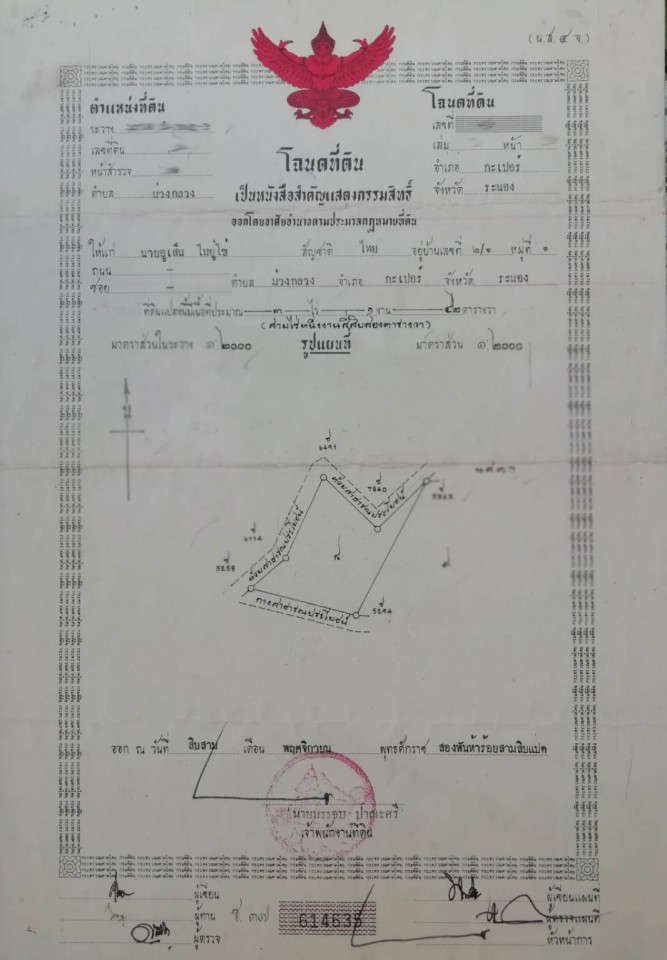 (น.ส.๔ จ.)
ตำแหน่งที่ดิน
ระวาง
เลขที่ดิน
หน้าสำรวจ
ตำบล ม่วงกลวง
โฉนดที่ดิน
เลขที่
เล่ม หน้า
อำเภอ กะเปอร์
จังหวัด ระนอง
โฉนดที่ดิน
เป็นหนังสือสำคัญแสดงกรรมสิทธิ์
ออกโดยอาศัยอำนาจตามประมวลกฎหมายที่ดิน
ให้แก่ นาย สัญชาติ ไทย อยู่บ้านเลขที่ ๒/๑ หมู่ที่ ๑
ถนน –
ซอย – ตำบล ม่วงกลวง อำเภอ กะเปอร์ จังหวัด ระนอง
ที่ดินแปลงนี้มีเนื้อที่ประมาณ ๓ ไร่ ๑ งาน ๔๒ ตารางวา
(สามไร่หนึ่งงานสี่สิบสองตารางวา)
มาตราส่วนในระวาง ๑:๒๐๐๐ รูปแผนที่ มาตราส่วน ๑:๒๐๐๐
น
ห้วยสาธารณประโยชน์
ห้วยสาธารณประโยชน์
ทางสาธารณประโยชน์
ออก ณ วันที่ สิบสาม เดือน พฤศจิกายน พุทธศักราช สองพันห้าร้อยสามสิบแปด
เจ้าพนักงานที่ดิน
ผู้เขียน
ผู้ทาน
ผู้ตรวจ
ช. ๓๗
614635
ผู้เขียนแผนที่
ผู้ตรวจแผนที่
หัวหน้าการ